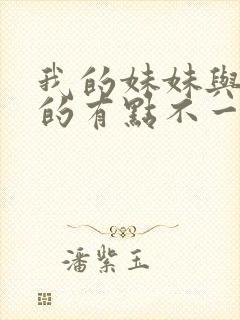 我的妹妹與
的有點不一
潘紫玉